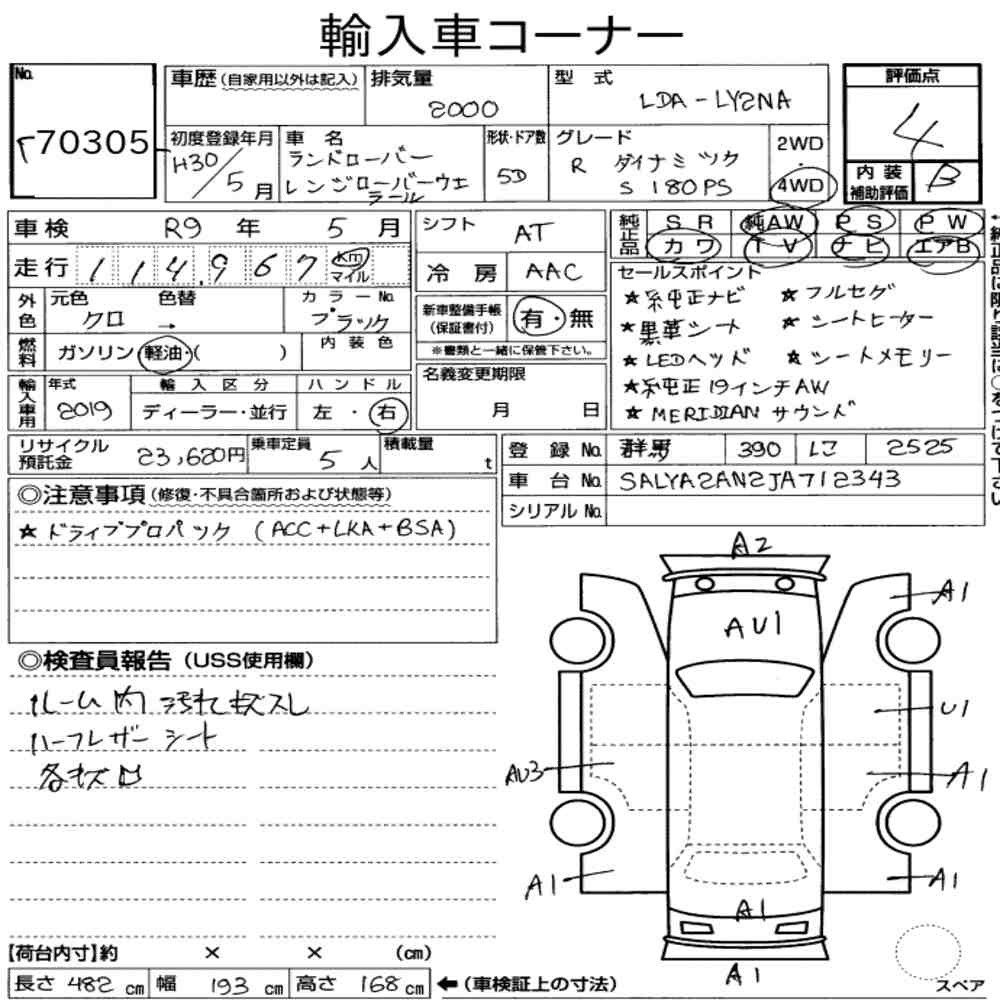 輸入車コーナー
No. 70305
車歴 (自家用以外は記入)
排気量 2000
型式 LDA-LY2NA
評価点 4
初度登録年月 H30/5月
車名 ランドローバー レンジローバーヴェラール
形状・ドア数 5D
グレード R ダイナミック S 180PS
2WD・4WD
内装補助評価 B
車検 R9年 5月
シフト AT
純正品 SR 純AW PS PW
カワ TV ナビ エアB
走行 114,967 Km マイル
冷房 AAC
セールスポイント
★純正ナビ ★フルセグ
★黒革シート ★シートヒーター
★LEDヘッド ★シートメモリー
★純正19インチAW
★MERIDIANサウンド
外色 元色 クロ 色替 →
カラーNo. ブラック
新車整備手帳(保証書付) 有・無
※書類と一緒に保管下さい。
燃料 ガソリン・軽油・( )
内装色
名義変更期限 月 日
輸入車用 年式 2019
輸入区分 ディーラー・並行
ハンドル 左・右
リサイクル預託金 23,620円
乗車定員 5人
積載量 t
登録No. 群馬 390 2525
車台No. SALYA2AN2JA712343
シリアルNo.
◎注意事項 (修復・不具合箇所および状態等)
★ドライブプロパック (ACC+LKA+BSA)
◎検査員報告 (USS使用欄)
ルーム内 汚れキズスレ
ハーフレザーシート
各キズ
A2
A1
AU1
U1
AU3
A1
A1
A1
A1
A1
スペア
【荷台内寸】約 × × (cm)
長さ 482 cm 幅 193 cm 高さ 168 cm ←(車検証上の寸法)